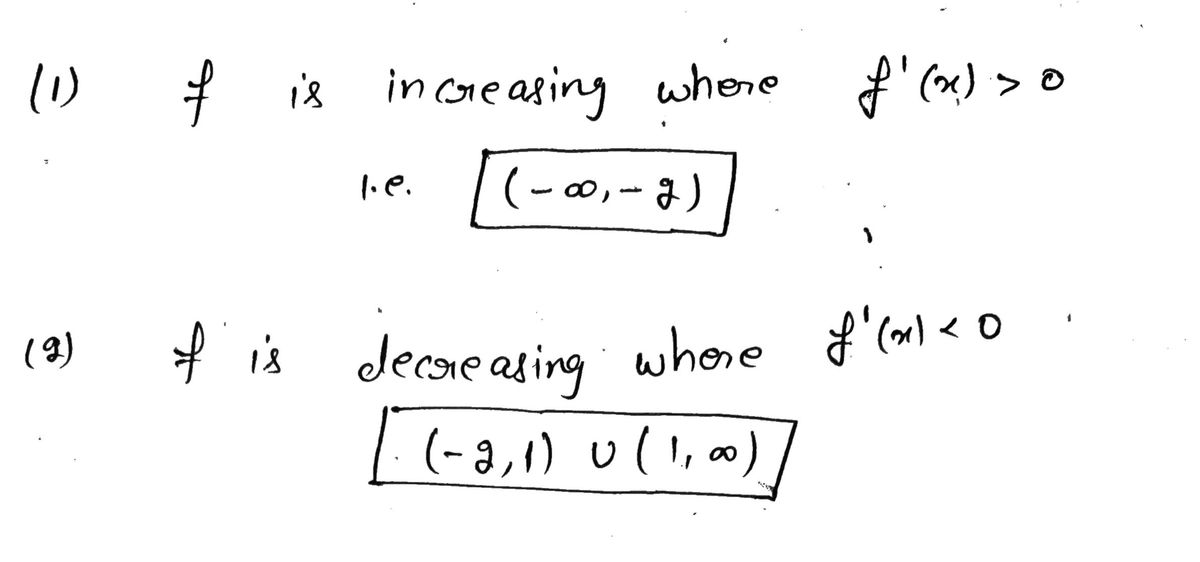 (1) f is increasing where f'(x) > 0
i.e. (-∞, -2)
(2) f is decreasing where f'(x) < 0
(-2, 1) ∪ (1, ∞)